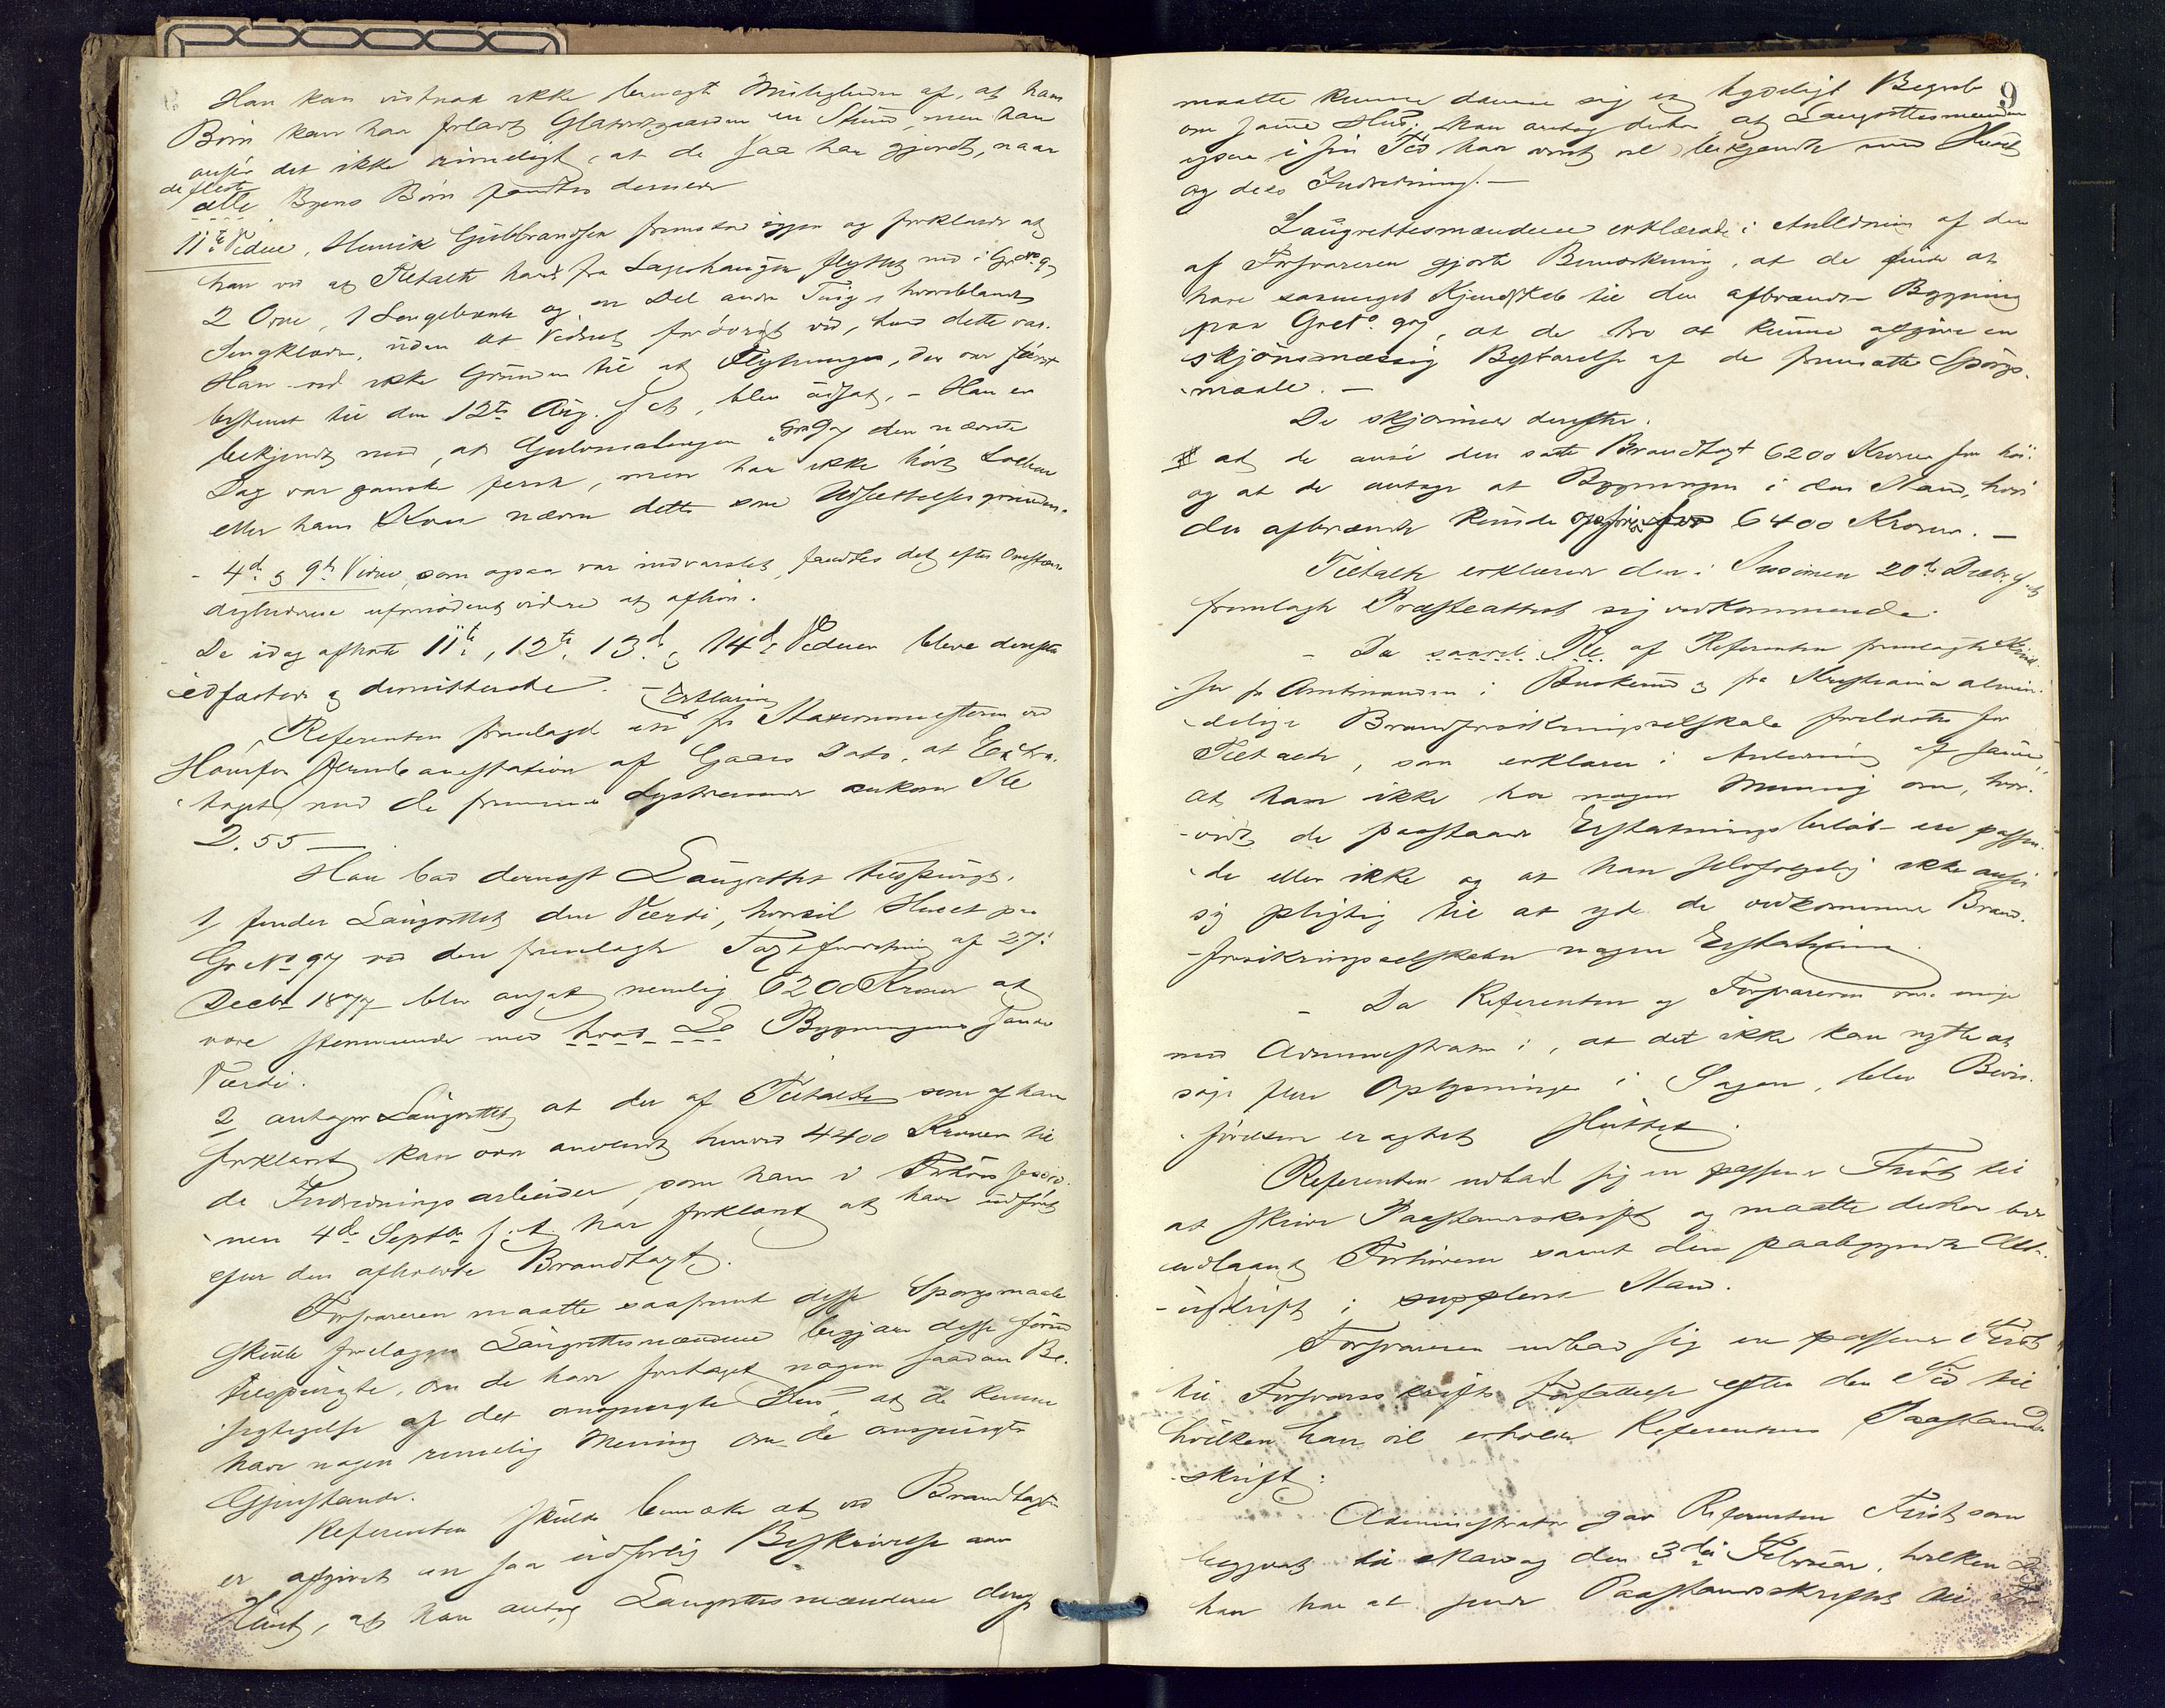 Han kan vistnok ikke benægte Muligheden af, at hans
Børn kan ha forladt Glasværkgaarden en Stund, men han
anser det ikke rimeligt, at de saa har gjordt, naar
de fleste
alle Byens Børn fandtes dernede
11te Vidne, Henrik Gulbrandsen fremstod igjen og forklarede at
han ved at Tiltalte havde fra flyttet ned i Gr No 97
2 Ovne, 1 Sengebænk og en Del andre Ting, hvoriblandt
Sengklæder, uden at Vidnet forövrigt ved, hvad dette var.
Han ved ikke Grunden til at Flytningen, der var först
bestemt til den 12te Aug. f. A, blev udsat, - Han er
bekjendt med, at Gulvmalingen i Gr 97 den nævnte
Dag var ganske fersk, men har ikke hört
eller hans Kone nævne dette som Udsættelsesgrunden.
- 4de og 9de Vidne, som ogsaa var indvarslet, fandtes det efter Omstæn-
dighederne ufornödent videre at afhöre.
De idag afhørte 11te, 12te, 13de og 14de Vidner bleve derefter
edfæstede og dimitterede. -
Erklæring
Referenten fremlagde en fra Stationsmesteren ved
Hönefos Jernbanestation af Gaars Dato, at Extra-
toget, med de fremmede ankom Kl
2.55 -
Han bad dernæst Laugrettet tilspurgt.
1, finder Laugrettet den Værdi, hvortil Huset paa
Gr No 97 ved den fremlagte Taxtforretning af 27de
Decbr 1877 blev ansat nemlig 6200 Kroner at
være stemmende med hvad Bygningens sande
Værdi.
2 antager Laugrettet at der af Tiltalte som af ham
forklaret kan være anvendt henved 4400 Kroner til
de Indredningsarbeider, som han i Forhörssessio-
nen 4de Septbr f. A. har forklaret at have udfört
efter den afholdte Brandtaxt.
Forsvareren maatte saafremt disse Spörgsmaale
skulde forelægges Laugrettesmændene begjære disse förend
tilspurgte, om de have foretaget nogen saadan Be-
sigtigelse af det omspurgte Hus, at de kunne
have nogen rimelig Mening om de omspurgte
Gjenstande.
Referenten skulde bemærke at ved Brandtaxten
er afgivet en saa udförlig Beskrivelse over
Huset, at han antog Laugrettesmændene derf
9
maatte kunne danne sig et tydeligt Begreb
om samme Hus; han antog derhos at Laugrettesmændene
ogsaa i sin Tid har været vel bekjendte med Huset
og dets Indredning. -
Laugrettesmændene erklærede i Anledning af den
af Forsvareren gjorte Bemærkning, at de finde at
have saameget Kjendskab til den afbrændte Bygning
paa Gr No 97, at de tro at kunne afgive en
skjönsmæssig Besvarelse af de fremsatte Spörgs-
maale. -
De skjönnede derefter.
at de anse den satte Brandtaxt 6200 Kroner for höi
og at de antage at Bygningen i den Stand, hvori
den afbrændte kunde opföres for 6400 Kroner. -
Tiltalte erklærede den i Sessionen 20de Decbr f. A
fremlagte Præsteattest sig vedkommende.
- De saavel af Referenten fremlagte Skrivel-
ser fra Amtmanden i Buskerud og fra Kristiania almin-
delige Brandforsikringsselskab foreholdtes for
Tiltalte, som erklærer i Anledning af samme,
at han ikke har nogen Mening om, hvor-
vidt de paastaaede Erstatningsbelöb er passen-
de eller ikke og at han selvfølgelig ikke anser
sig pligtig til at yde de vedkommende Brand-
forsikringsselskaber nogen Erstatning.
- Da Referenten og Forsvareren vare enige
med Administrator i, at det ikke kan nytte at
söge flere Oplysninger i Sagen, blev Bevis-
förelsen eragtet sluttet.
Referenten udbad sig en passende Frist til
at skrive Paastandsskrift og maatte derhos bede
udlaant Forhörene samt den paabegyndte Akt-
udskrift i suppleret Stand.
Forsvareren udbad sig en passende Frist
til Forsvarsskrifts Forfattelse efter den Tid til
hvilken han vil erholde Referentens Paastands-
skrift.
Administrator gav Referenten Frist som
begjært til Mandag den 3die Februar, hvilken Dag
han har at sende Paastandsskriftet til